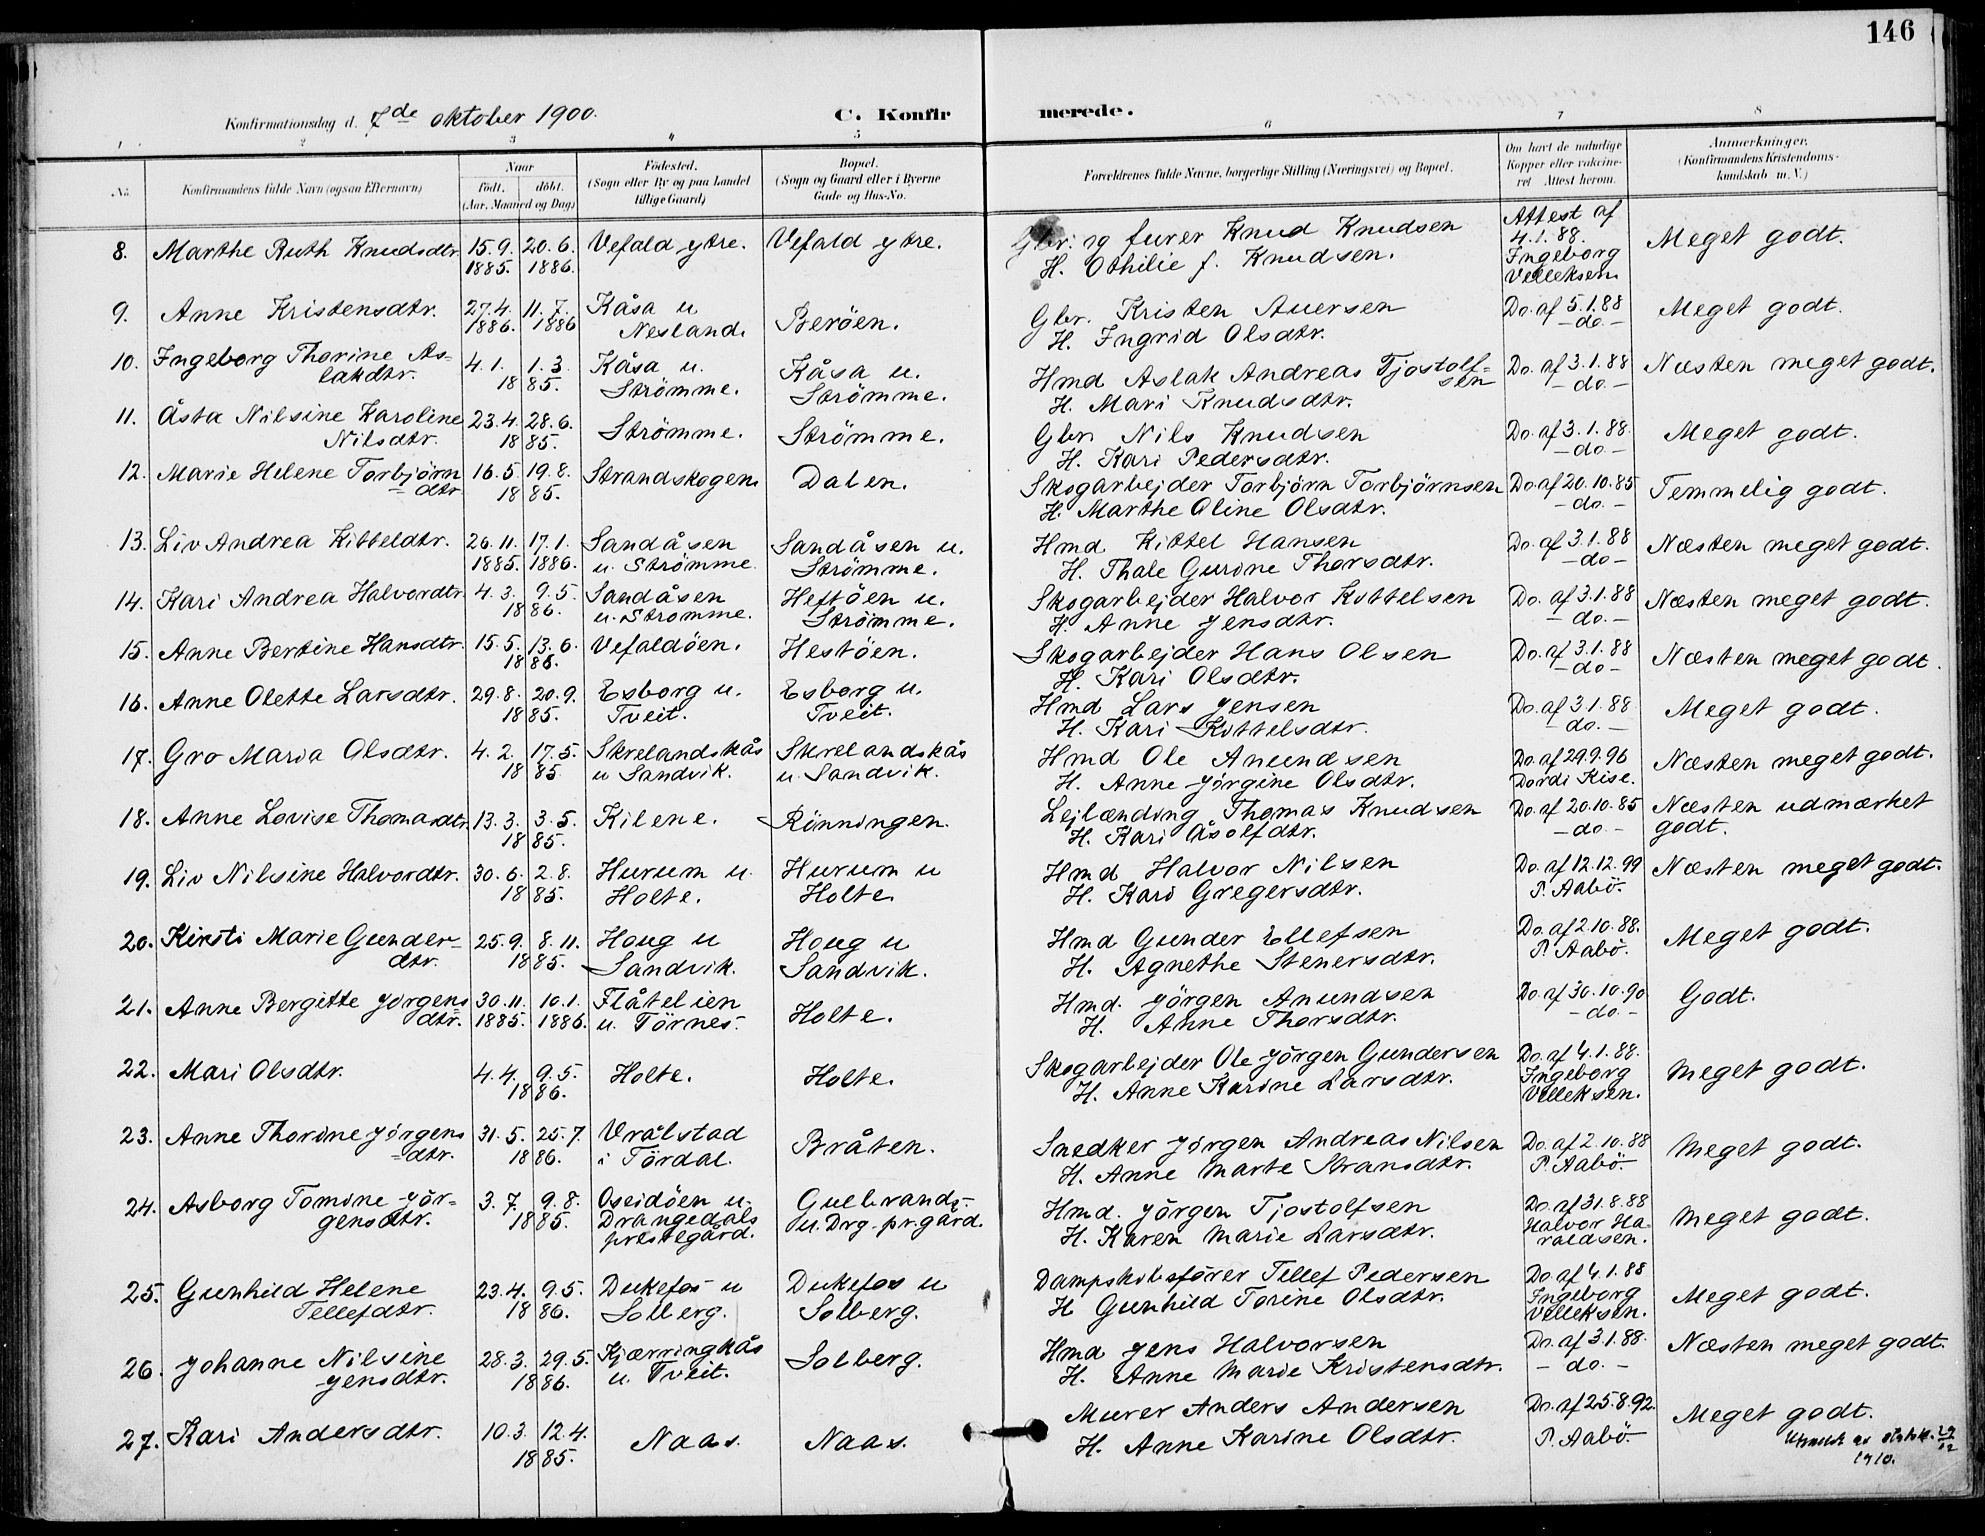 146
Konfirmationsdag d. 7de oktober 1900. C. Konfir merede.
1 2 3 4 5 6 7 8
No. Konfirmandens fulde Navn (ogsaa Efternavn) Naar født. døbt. (Aar, Maaned og Dag) Fødested. (Sogn eller By og paa Landet tillige Gaard) Bopæl. (Sogn og Gaard eller i Byerne Gade og Hus-No. Forældrenes fulde Navne, borgerlige Stilling (Næringsvei) og Bopæl. Om havt de naturlige Kopper eller vakcineret Attest herom. Anmerkninger. (Konfirmandens Kristendomskundskab m. V.)
8. Marthe Ruth Knudsdtr. 15.9. 20.6. Vefald ytre. Vefald ytre. Gbr. og furer Knud Knudsen Attest af Meget godt.
1885. 1886. H. Othilie f. Knudsen. 4.1.88. Ingeborg Velleksen
9. Anne Kristensdtr. 27.4. 11.7. Kåsa u Berøen. Gbr. Kristen Auersen Do. af 5.1.88 Meget godt.
1886. 1886 Nesland. H. Ingrid Olsdtr. -do.-
10. Ingeborg Thorine As- 4.1. 1.3. Kåsa u. Kåsa u. Hmd Aslak Andreas Tjostolf- Do. af 3.1.88 Næsten meget godt.
lakdtr. 1885. Strømme. Strømme. sen H. Mari Knudsdtr. -do-
11. Åsta Nilsine Karoline 23.4. 28.6. Strømme. Strømme. Gbr. Nils Knudsen Do. af 3.1.88. Meget godt.
Nilsdtr. 1885. H. Kari Pedersdtr. -do-
12. Marie Helene Torbjørn 16.5 19.8. Strandskogen Dalen. Skogarbejder Torbjørn Torbjørnsen Do. af 20.10.85 Temmelig godt.
=dtr 1885. H. Marthe Oline Olsdtr. -do.-
13. Liv Andrea Kitteldtr. 26.11. 17.1. Sandåsen Sandåsen u. Hmd. Kittel Hansen Do. af 3.1.88 Næsten meget godt.
1885. 1886. u. Strømme. Strømme. H. Thale Gurine Thorsdtr. -do-
14. Kari Andrea Halvordtr. 4.3. 9.5. Sandåsen Hestøen u. Skogarbejder Halvor Kittelsen Do. af 3.1.88 Næsten meget godt.
1886. u. Strømme. Strømme. H. Anne Jensdtr. -do.-
15. Anne Bertine Hansdtr. 15.5. 13.6. Vefaldøen. Hestøen. Skogarbejder Hans Olsen Do. af 3.1.88 Næsten meget godt.
1886. H. Kari Olsdtr. -do-
16. Anne Olette Larsdtr. 29.8. 20.9. Esborg u. Esborg u. Hmd Lars Jensen Do. af 3.1.88 Meget godt.
1885. Tveit. Tveit. H. Kari Kittelsdtr. -do.-
17. Gro Maria Olsdtr. 4.2. 17.5. Skrelandskås Skrelandskås Hmd Ole Anundsen Do. af 29.9.96 Næsten meget godt.
1885 u Sandvik. u. Sandvik. H. Anne Jørgine Olsdtr. Dordi Kise.
18. Anne Lovise Thomasdtr. 13.3. 3.5. Kilene. Rønningen. Lejlænding Thomas Knudsen Do. af 20.10.85 Næsten udmærket
1885. H. Kari Åsolfdtr. -do- godt.
19. Liv Nilsine Halvordtr. 30.6. 2.8. Hurum u. Hurum u Hmd Halvor Nilsen Do. af 12.12.99 Næsten meget godt.
1885. Holte. Holte H. Kari Gregersdtr. P. Aabø.
20. Kirsti Marie Gunder- 25.9. 8.11. Houg u Houg u Hmd Gunder Ellefsen Do. af 2.10.88. Meget godt.
dtr. 1885. Sandvik. Sandvik. H. Agnethe Stenersdtr. P. Aabø.
21. Anne Bergitte Jørgens 30.11. 10.1. Flåtelien Holte. Hmd. Jørgen Anundsen Do. af 30.10.90 Godt.
dtr. 1885. 1886. u. Tørnes. H. Anne Thorsdtr. -do.-
22. Mari Olsdtr. 4.4. 9.5. Holte. Holte. Skogarbejder Ole Jørgen Gundersen Do. af 4.1.88. Meget godt.
1886. H. Anne Karine Larsdtr. Ingeborg Velleksen.
23. Anne Thorine Jørgens 31.5. 25.7. Vrålstad Bråten. Snedker Jørgen Andreas Nilsen Do. af 2.10.88 Meget godt.
=dtr. 1886. i Tørdal. H. Anne Marte Stransdtr. P. Aabø.
24. Asborg Tomine Jør- 3.7. 9.8. Oseidøen u. Gulbrands- Hmd. Jørgen Tjostolfsen Do. af 31.8.88 Meget godt.
gensdtr. 1885. Drangedals prestegård. u. Drg. pr.gård. H. Karen Marie Larsdtr. Halvor Haraldsen.
25. Gunhild Helene 23.4. 9.5. Dukefos u Dukefos u Dampskibsfører Tellef Pedersen Do. af 4.1.88 Meget godt.
Tellefdtr. 1886. Solberg. Solberg. H Gunhild Torine Olsdtr. Ingeborg Velleksen.
26. Johanne Nilsine 28.3. 29.5. Kjærringkås Solberg. Hmd Jens Halvorsen Do. af 3.1.88. Næsten meget godt.
Jensdtr. 1886. u. Tveit. H. Anne Marie Kristensdtr. -do.-
27. Kari Andersdtr. 10.3. 12.4. Naas. Naas. Murer Anders Andersen Do. af 25.8.92. Meget godt.
1885. H. Anne Karine Olsdtr. P. Aabø. 29/12 1910.